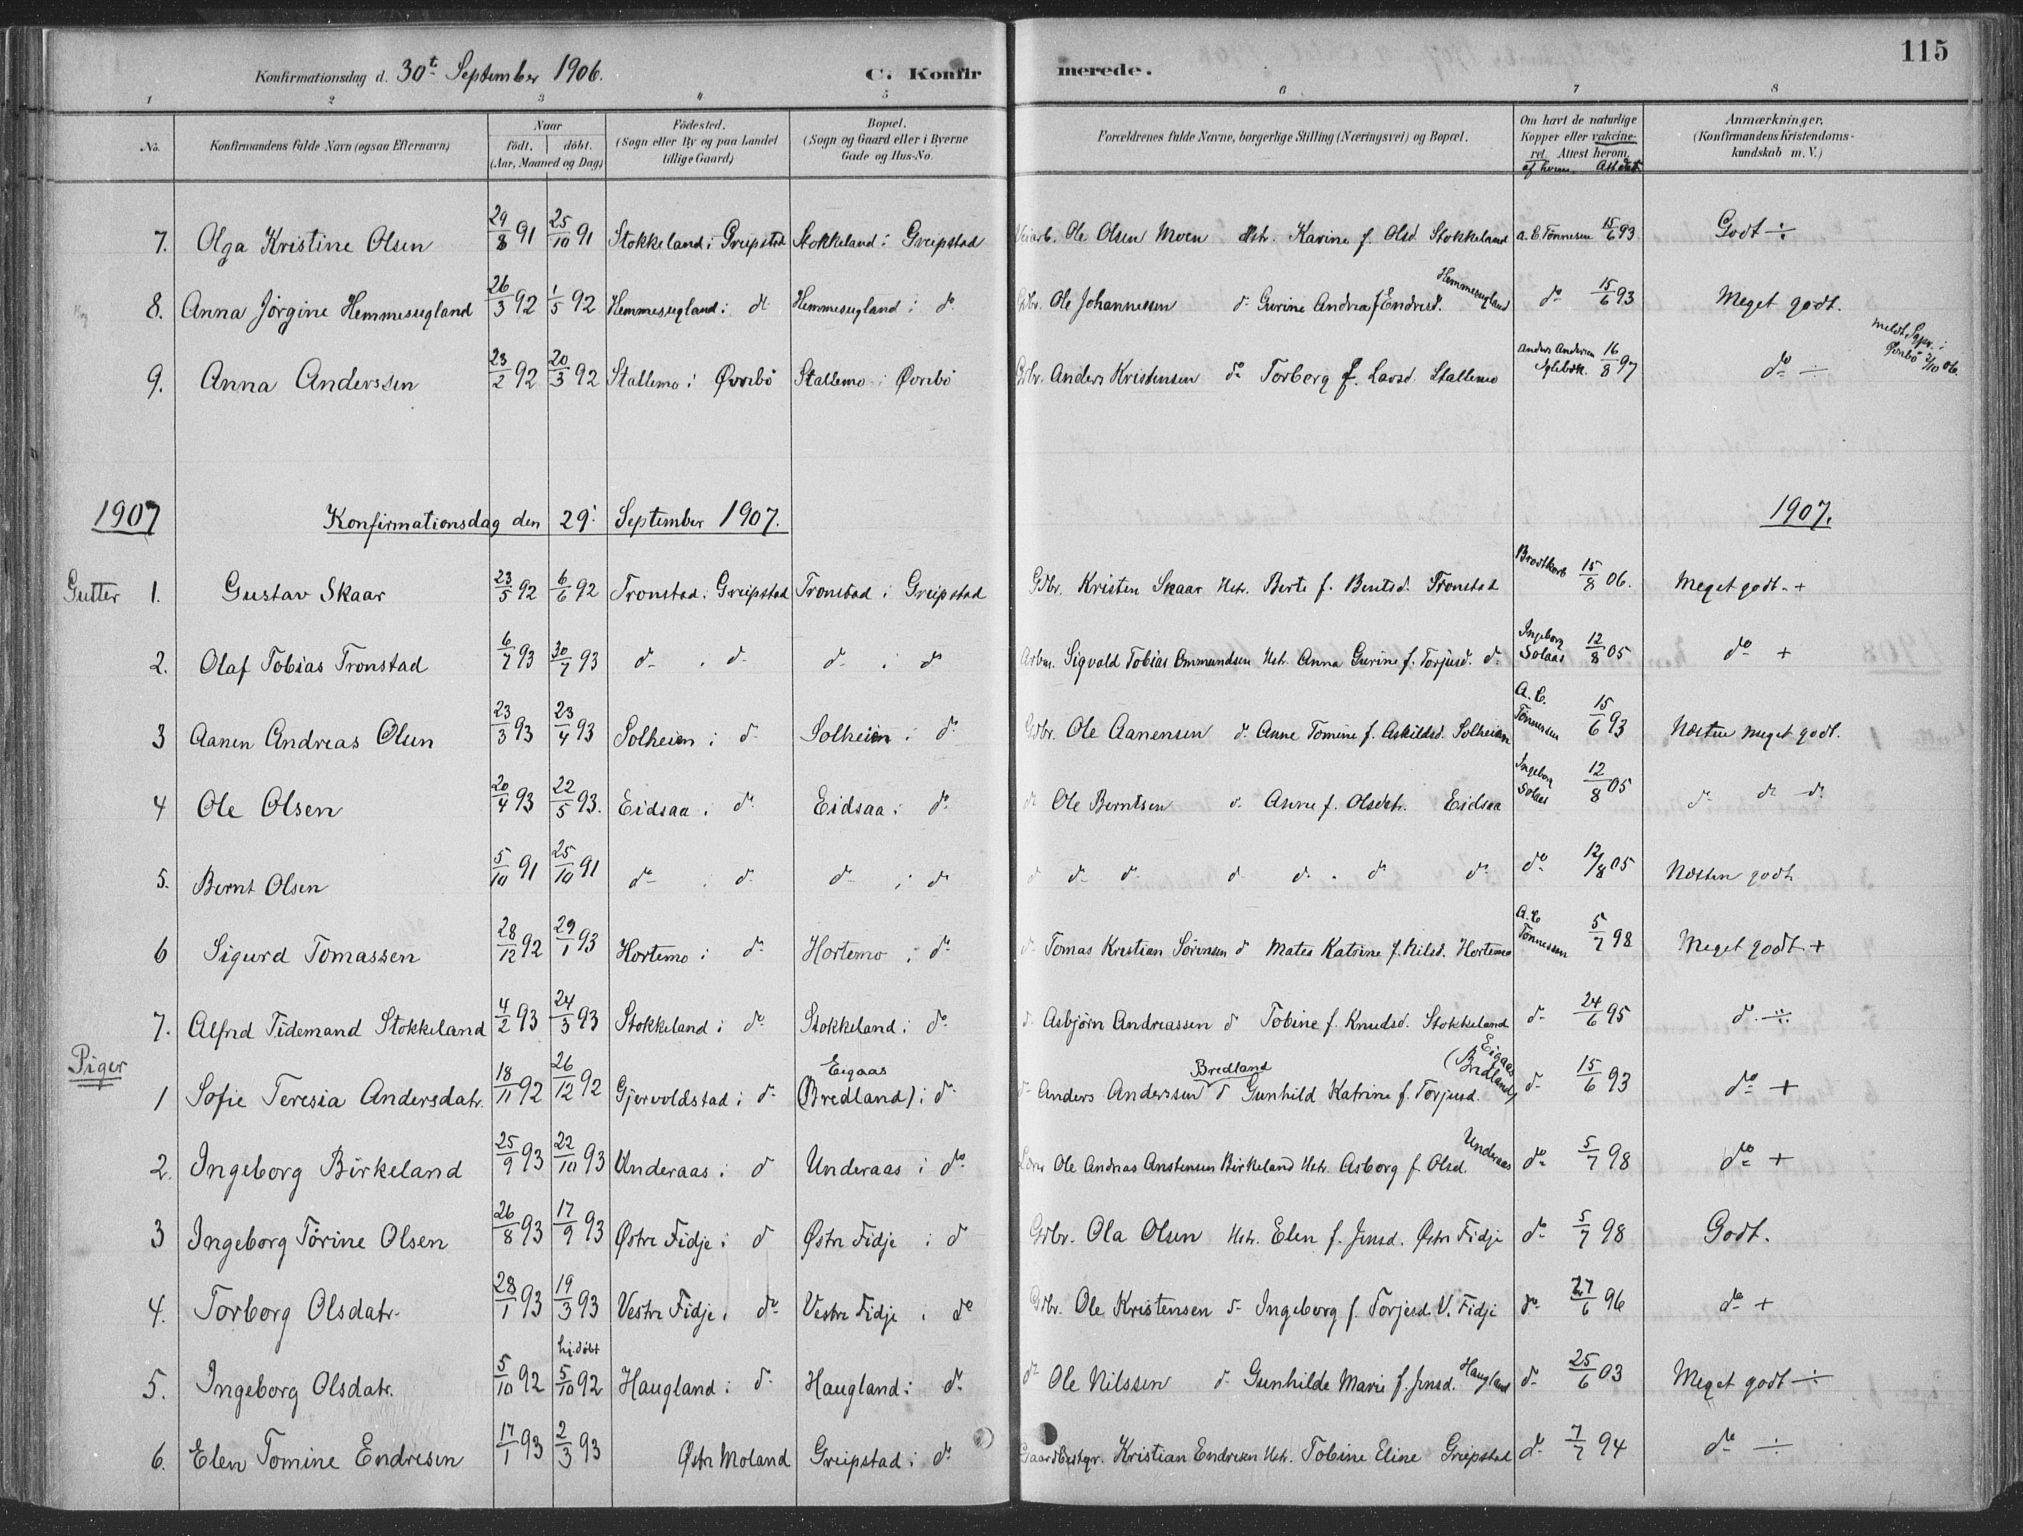 115
Konfirmationsdag d. 30t September 1906. C. Konfir merede.
1 2 3 4 5 6 7 8
No. Konfirmandens fulde Navn (ogsaa Efternavn) Naar født. døbt. (Aar, Maaned og Dag) Fødested. (Sogn eller By og paa Landet tillige Gaard) Bopæl. (Sogn og Gaard eller i Byerne Gade og Hus-No. Forældrenes fulde Navne, borgerlige Stilling (Næringsvei) og Bopæl. Om havt de naturlige Kopper eller vakcineret. Attest herom. af hvem. Att dat. Anmærkninger. (Konfirmandens Kristendomskundskab m. V.)
7. Olga Kristine Olsen 29/8 91 25/10 91 Stokkeland i Greipstad Stokkeland i Greipstad Ole Olsen Moen Hstr. Karine f. Olsd. Stokkeland A. C. Tønnesen 15/6 93 Godt ÷
8. Anna Jørgine Hemmesugland 26/3 92 1/5 92 Hemmesugland i do Hemmesugland i do Gdbr. Ole Johannessen do Gurine Andrea f. Endresd. Hemmesugland do 15/6 93 Meget godt.
9. Anna Anderssen 23/2 92 20/3 92 Stallemo i Øvrebø Stallemo i Øvrebø Gdbr. Anders Kristensen do Torberg f. Larsd. Stallemo Anders Andersen 16/8 97 do ÷ meldt Sgpr. i Øvrebø 2/10 06.
1907 Konfirmationsdag den 29. September 1907. 1907.
Gutter 1. Gustav Skaar 23/5 92 6/6 92 Tronstad i Greipstad Tronstad i Greipstad Gdbr. Kristen Skaar Hstr. Berte f. Bentsd. Tronstad Brodtkorb 15/8 06. Meget godt. +
2. Olaf Tobias Tronstad 6/7 93 30/7 93 do i do do i do Arbm. Sigvald Tobias Ommundsen Hstr. Anna Gurine f. Torjusd. do Ingeborg Solaas 12/8 05 do +
3 Aanen Andreas Olsen 23/3 93 23/4 93 Solheien i do Solheien i do Gdbr. Ole Aanensen do Anne Tomine f. Askildsd. Solheien A. C. Tønnessen 15/6 93 Næsten meget godt.
4 Ole Olsen 20/4 93 22/5 93. Eidsaa i do Eidsaa i do do Ole Berntsen do Anne f. Olsdtr. Eidsaa Ingeborg Solaas 12/8 05 do do do
5. Bernt Olsen 5/10 91 25/10 91 do i do do i do do do do do do do do do 12/8 05 Næsten godt
6 Sigurd Tomassen 28/12 92 29/1 93 Hortemo i do Hortemo i do do Tomas Kristian Sørensen do Mates Katrine f. Nilsd. Hortemo A. C. Tønnessen 5/7 98 Meget godt +
7. Alfred Tidemand Stokkeland 4/2 93 24/3 93 Stokkeland i do Stokkeland i do do Asbjørn Andreassen do Tobine f. Knudsd. Stokkeland do 24/6 95 do ÷
Piger
1 Sofie Teresia Andersdatr. 18/11 92 26/12 92 Gjervoldstad i do Eigaas (Bredland) i do do Anders Anderssen Bredland do Gunhild Katrine f. Torjusd. Eigaas (Bredland) do 15/6 93 do +
2. Ingeborg Birkeland 25/9 93 22/10 93 Underaas i do Underaas i do Ole Andreas Anstensen Birkeland Hstr. Asborg f. Olsd. Underaas do 5/7 98 do +
3 Ingeborg Tørine Olsen 26/8 93 17/9 93 Østre Fidje i do Østre Fidje i do Gdbr. Ola Olsen Hstr. Elen f. Jensd. Østre Fidje do 5/7 98 Godt.
4. Torborg Olsdatr. 28/1 93 19/3 93 Vestre Fidje i do Vestre Fidje i do Gdbr. Ole Kristensen do Ingeborg f. Torjesd. V. Fidje do 27/6 96 do +
5. Ingeborg Olsdatr. 5/10 92 hj. døbt 5/10 92 Haugland i do Haugland i do do Ole Nilssen do Gunhilde Marie f. Jensd. Haugland do 25/6 03 Meget godt ÷
6. Elen Tomine Endresen 17/1 93 2/3 93 Østre Moland Greipstad i do Gaardbestyr. Kristian Endresen Hstr. Tobine Eline Greipstad do 7/7 94 do ÷